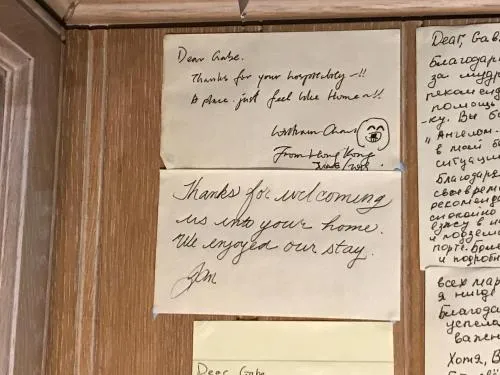 Dear Gabe.
Thanks for your hospitality -!!
A place. just feel like Home ~!!
From Hong Kong
Thanks for welcoming
us into your home.
We enjoyed our stay.
Dear Gabe
Dear, Gab
Благодар
за мудр
рекоменд
помощь
-ку. Вы б
"Ангелом.
в мой б
ситуаци
Благодаря
своеврем
рекоменд
спокойно
и подроби
всех мар
я нигд
Благода
успела
важн
Хотя, В